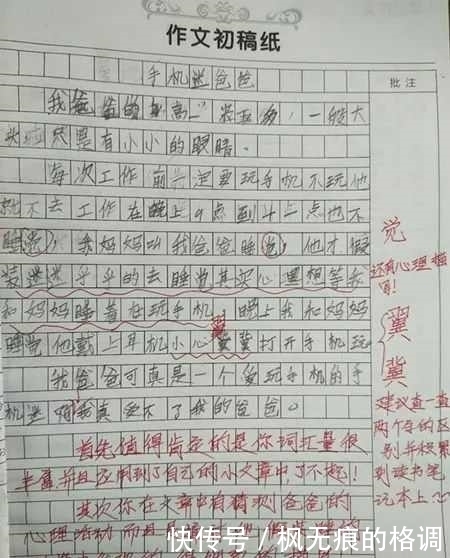 作文初稿纸
批注
手机迷爸爸
我爸爸的身高一米五多，一般大
头 只是有小小的眼睛.
每次工作前一定要玩手机不玩他
就不去工作在晚上9点到十二点也不
睡觉，我妈妈叫我爸爸睡觉，他才假
装迷迷乎乎的去睡觉其实心里想等我
和妈妈睡着在玩手机.晚上我和妈妈
睡觉他戴上耳机小心翼冀打开手机玩
我爸爸可真是一个爱玩手机的手
机迷啊我真受不了我的爸爸。
首先值得肯定的是你词汇量很
丰富并且应用到了自己的小文章中了不起！
其次你在文章中有猜测爸爸的
心理活动而且
觉
还有心理描
写！
翼
冀
建议查一查
两个字的区
别并积累
到读书笔
记本上
快传号／枫无痕的格调